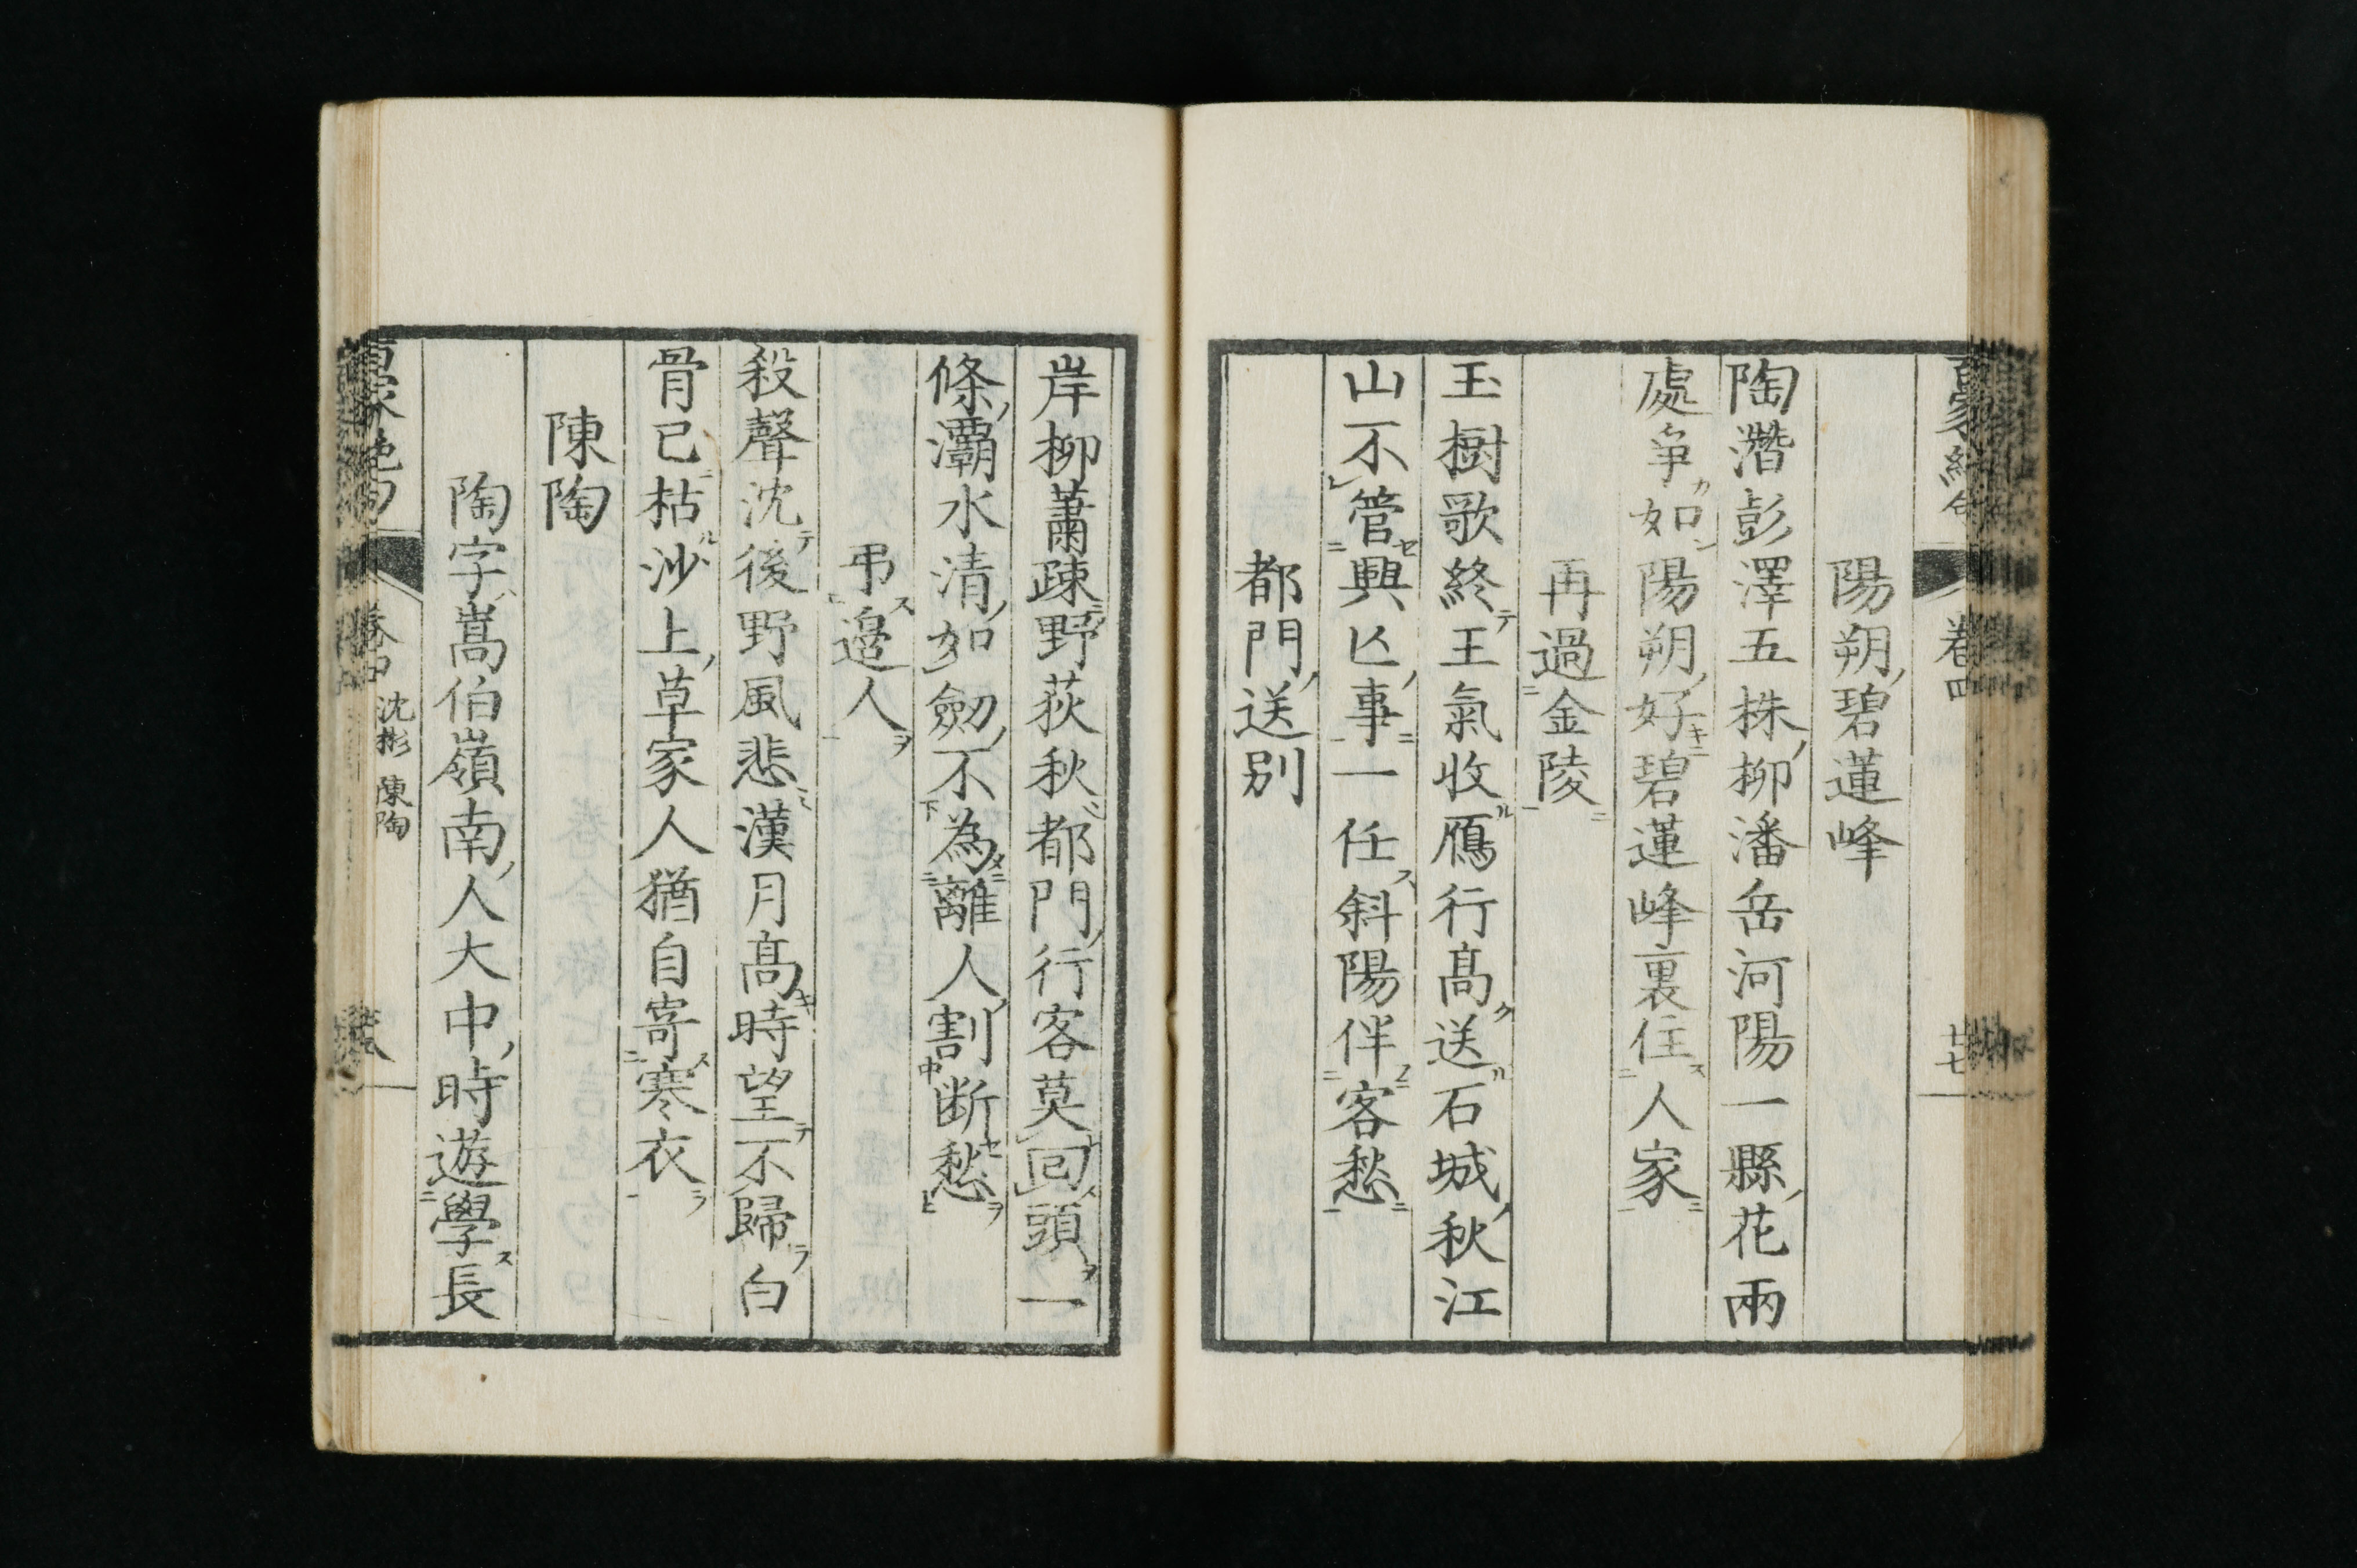 卷四
十七
陽朔碧蓮峰
陶潛彭澤五株柳潘岳河陽一縣花兩
處爭如陽朔好碧蓮峰裏住人家
再過金陵
玉樹歌終王氣收鴈行髙送石城秋江
山不管興亾事一任斜陽伴客愁
都門送别
岸柳蕭疎野荻秋都門行客莫回頭一
條灞水清如劒不為離人割断愁
弔邊人
殺聲沈後野風悲漢月髙時望不歸白
骨已枯沙上草家人猶自寄寒衣
陳陶
陶字嵩伯嶺南人大中時遊學長
卷四 沈彬 陳陶